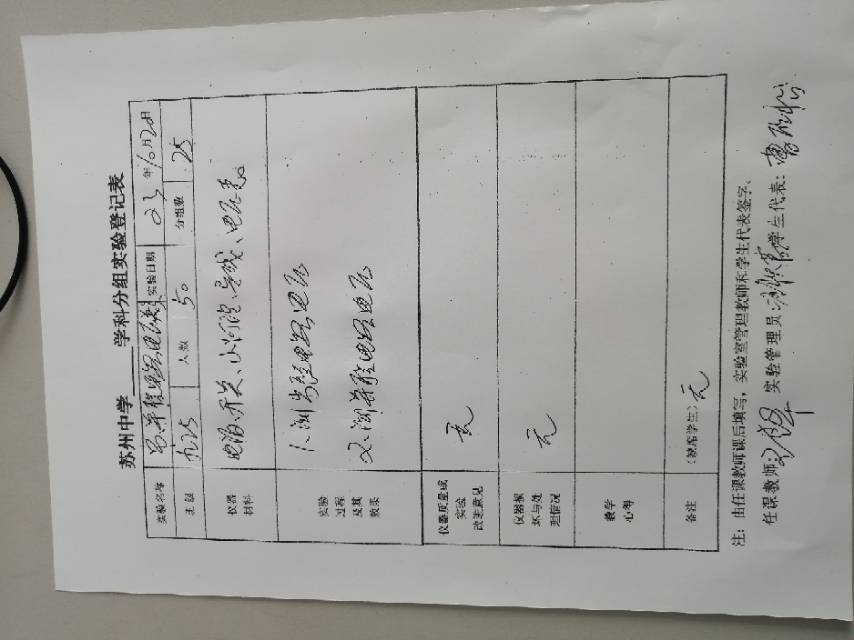 苏州中学 学科分组实验登记表
实验名称 串、并联电路电压关系 实验日期 23年10月20日
班级 九25 人数 50 分组数 25
仪器材料 电池、开关、小灯泡、导线、电压表。
实验过程及其效果 1、测串联电路电压
2、测并联电路电压
仪器质量或实验改进意见 无
仪器损坏与处理情况 无
教学心得
备注 (缺席学生) 无
注：由任课教师课后填写，实验室管理教师和学生代表签字。
任课教师: 实验管理员: 学生代表: